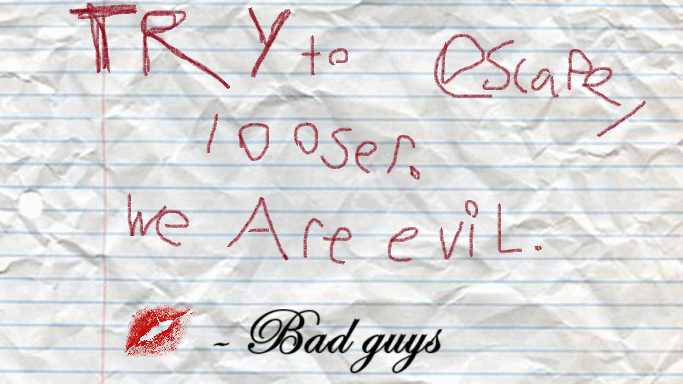 TRY to escape,
looser.
we Are eviL.
- Bad guys